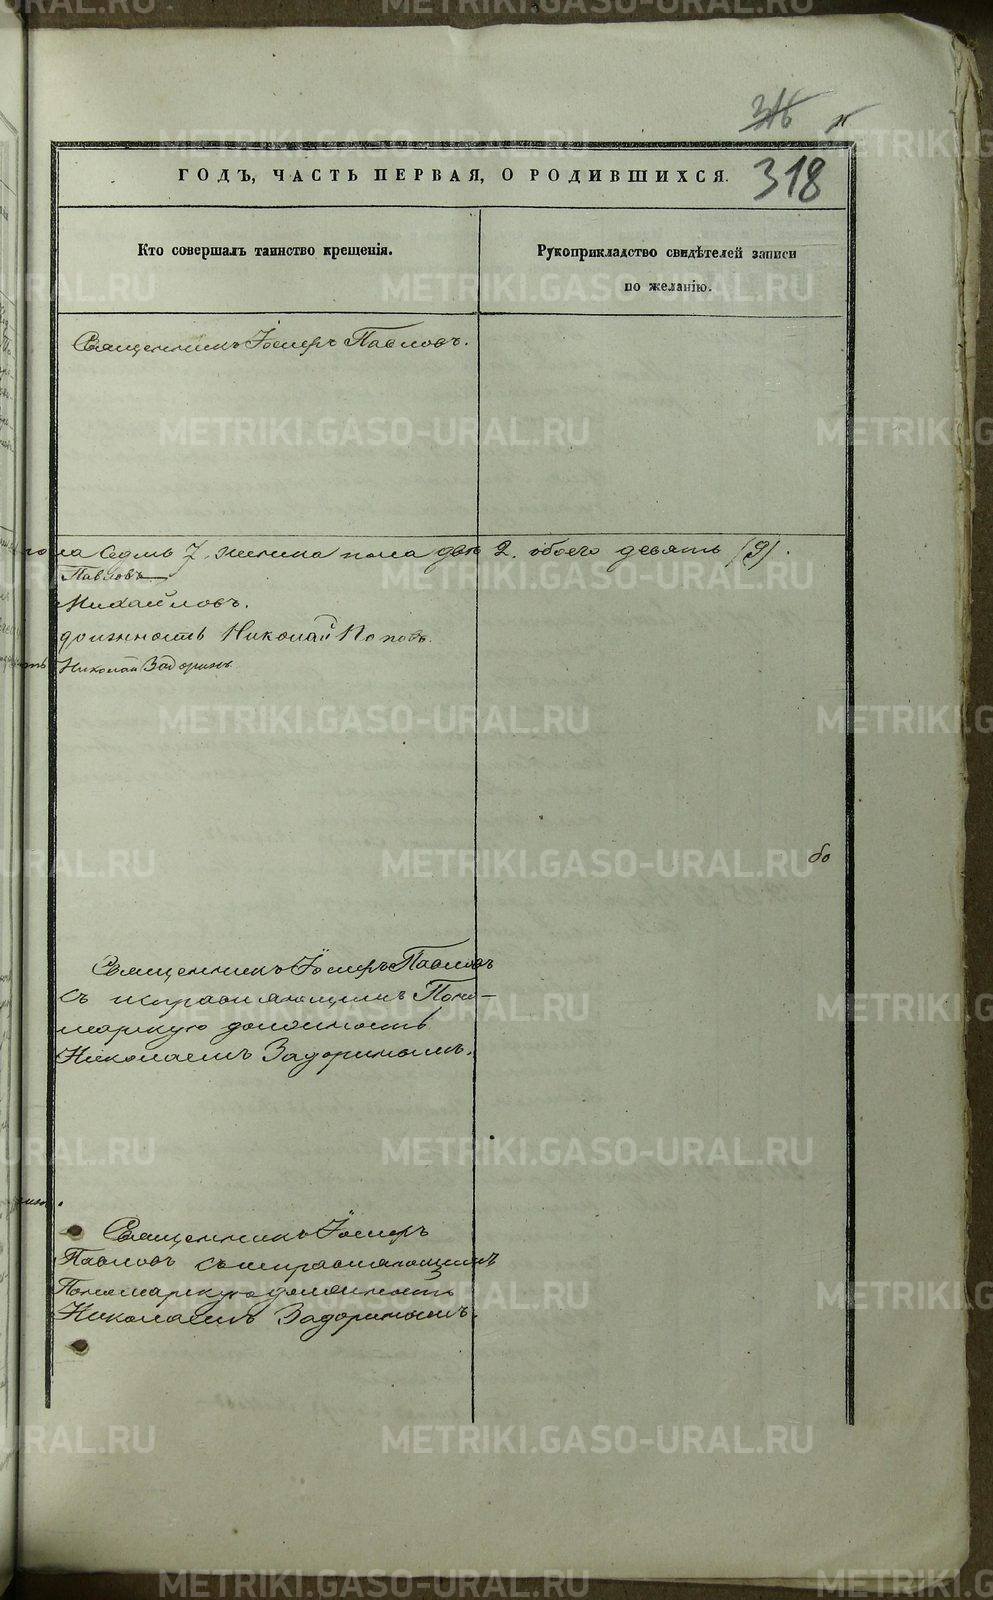 318
ГОДЪ, ЧАСТЬ ПЕРВАЯ, О РОДИВШИХСЯ.
Кто совершалъ таинство крещенія.
Рукоприкладство свидѣтелей записи
по желанію.
Священникъ Іосифъ Павловъ.
седмь 7. женска пола две 2. обоего девять (9).
Павловъ
Михайловъ.
должность Николай Поповъ.
Николай Задоринъ
Священникъ Іосифъ Павловъ
съ исправляющимъ Поно-
марскую должность
Николаемъ Задоринымъ.
Священникъ Іосифъ
Павловъ съ исправляющимъ
Пономарскую должность
Николаемъ Задоринымъ.
METRIKI.GASO-URAL.RU